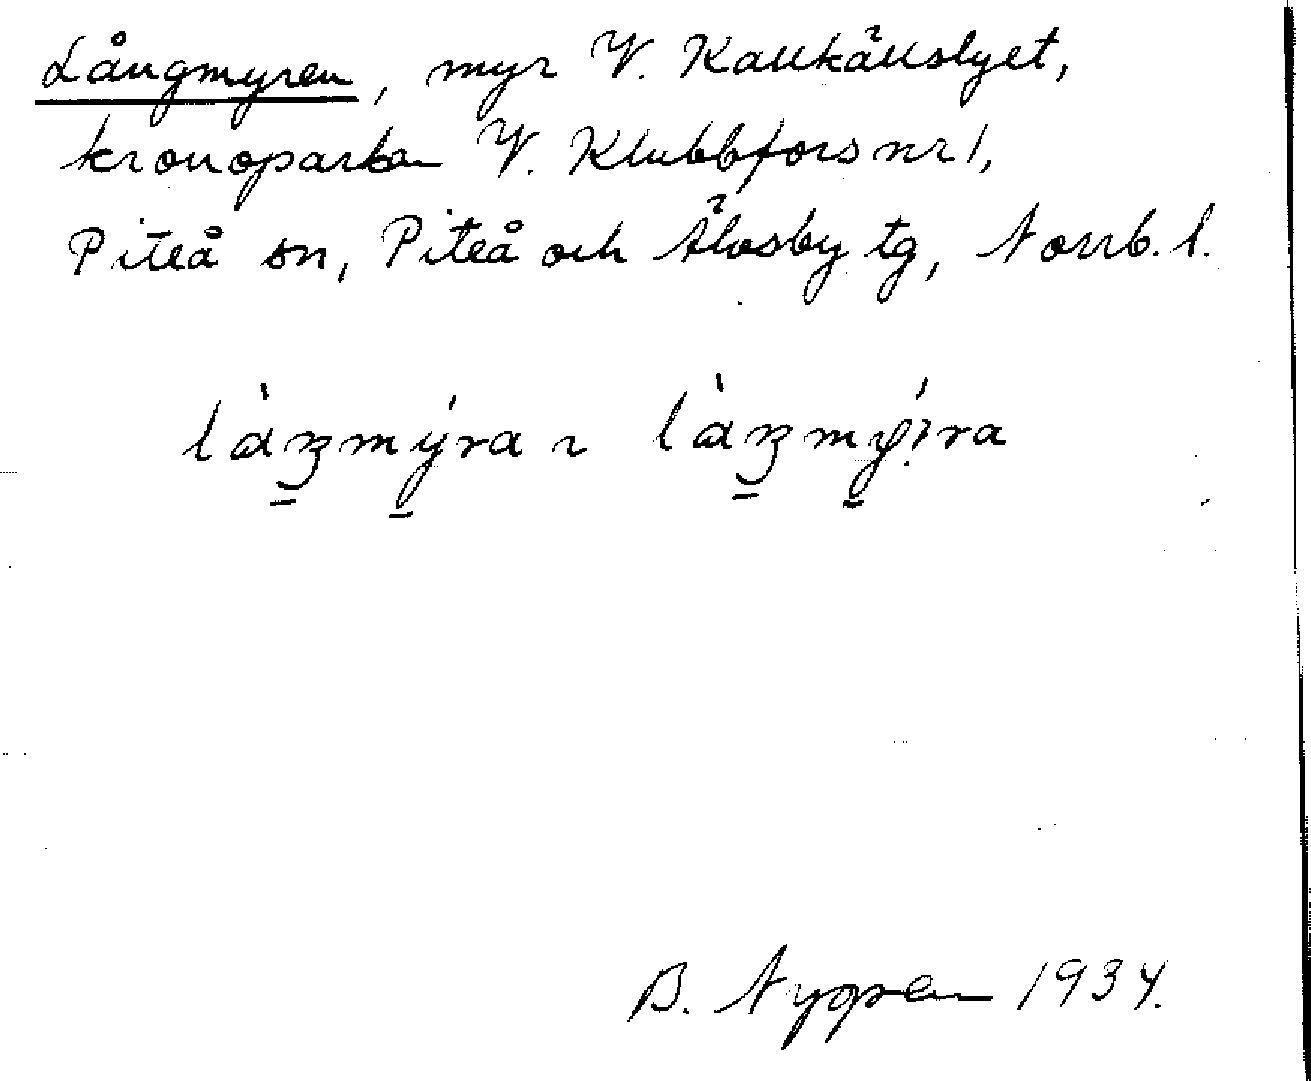 Långmyren, myr V. Kallkällslyet,
kronoparken V. Klubbfors nr 1,
Piteå sn, Piteå och Älvsby tg, Norrb. l.
B. Nygren 1934.